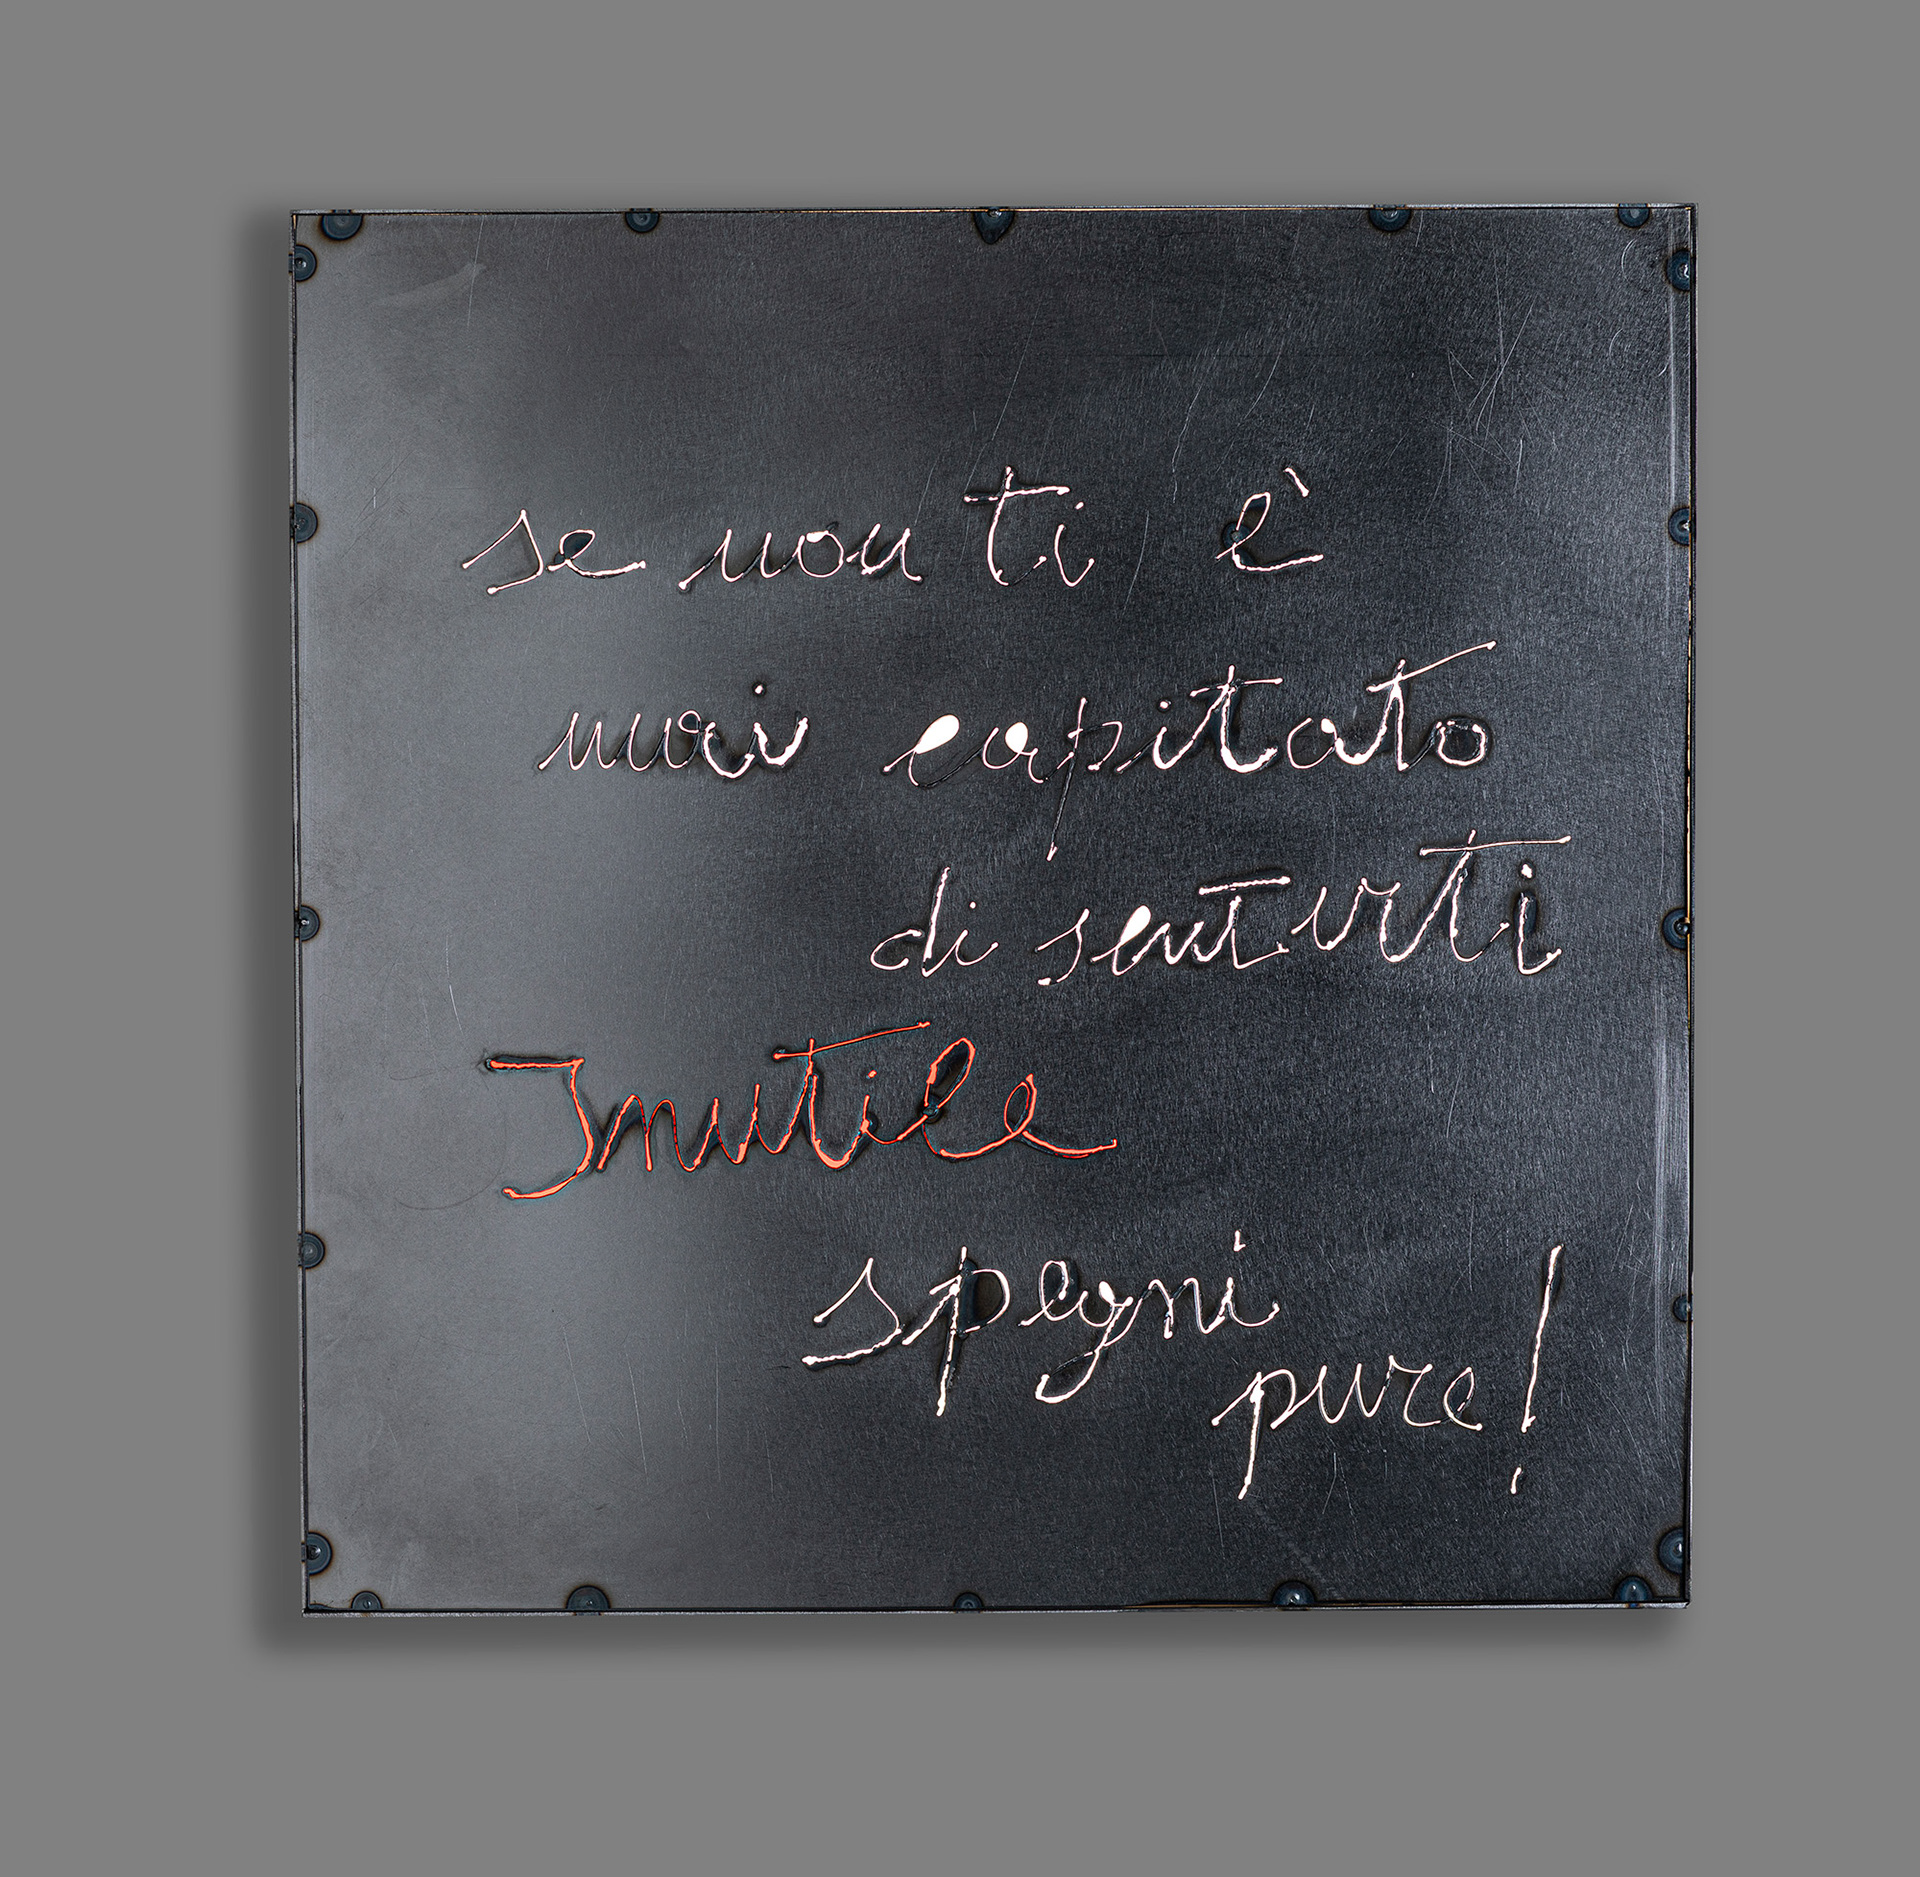 se non ti è
mai capitato
di sentirti
Inutile
spegni
pure!